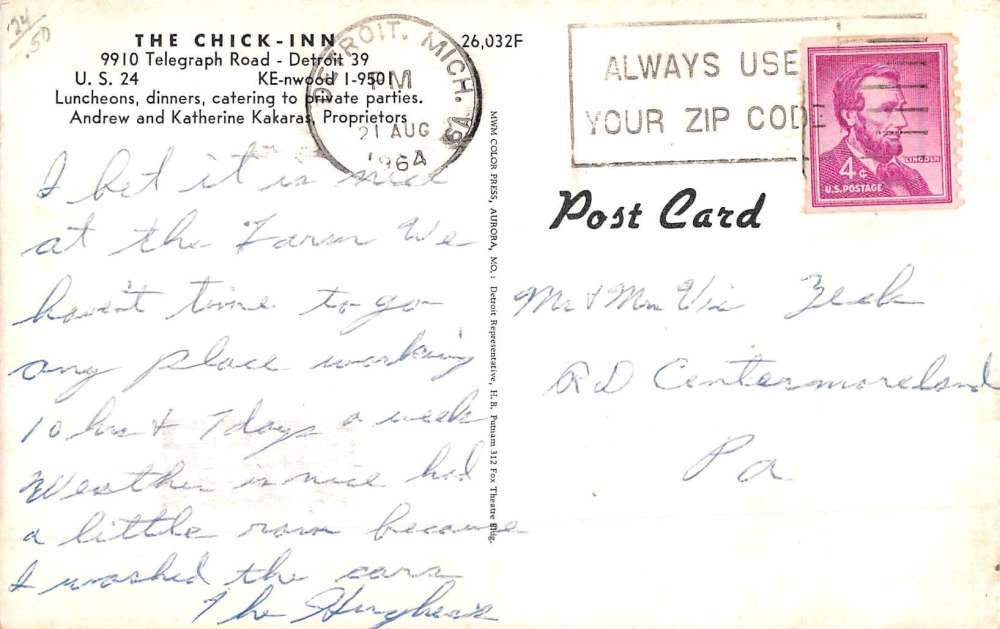 24
.50
THE CHICK-INN
9910 Telegraph Road - Detroit 39
U. S. 24 KE-nwood 1-9501
Luncheons, dinners, catering to private parties.
Andrew and Katherine Kakaras, Proprietors
26,032F
DETROIT, MICH.
PM
21 AUG
1964
ALWAYS USE
YOUR ZIP CODE
LINCOLN
4¢
U.S. POSTAGE
Post Card
MWM COLOR PRESS, AURORA, MO.: Detroit Representative, H. B. Putnam 312 Fox Theatre Bldg.
I bet it is nice
at the Farm We
haven't time to go
any place working
10 hrs & 7 days a week
Weather is nice had
a little rain because
I washed the cars
The Hughes's
Mr & Mrs Vic Zeek
RD Centermoreland
Pa